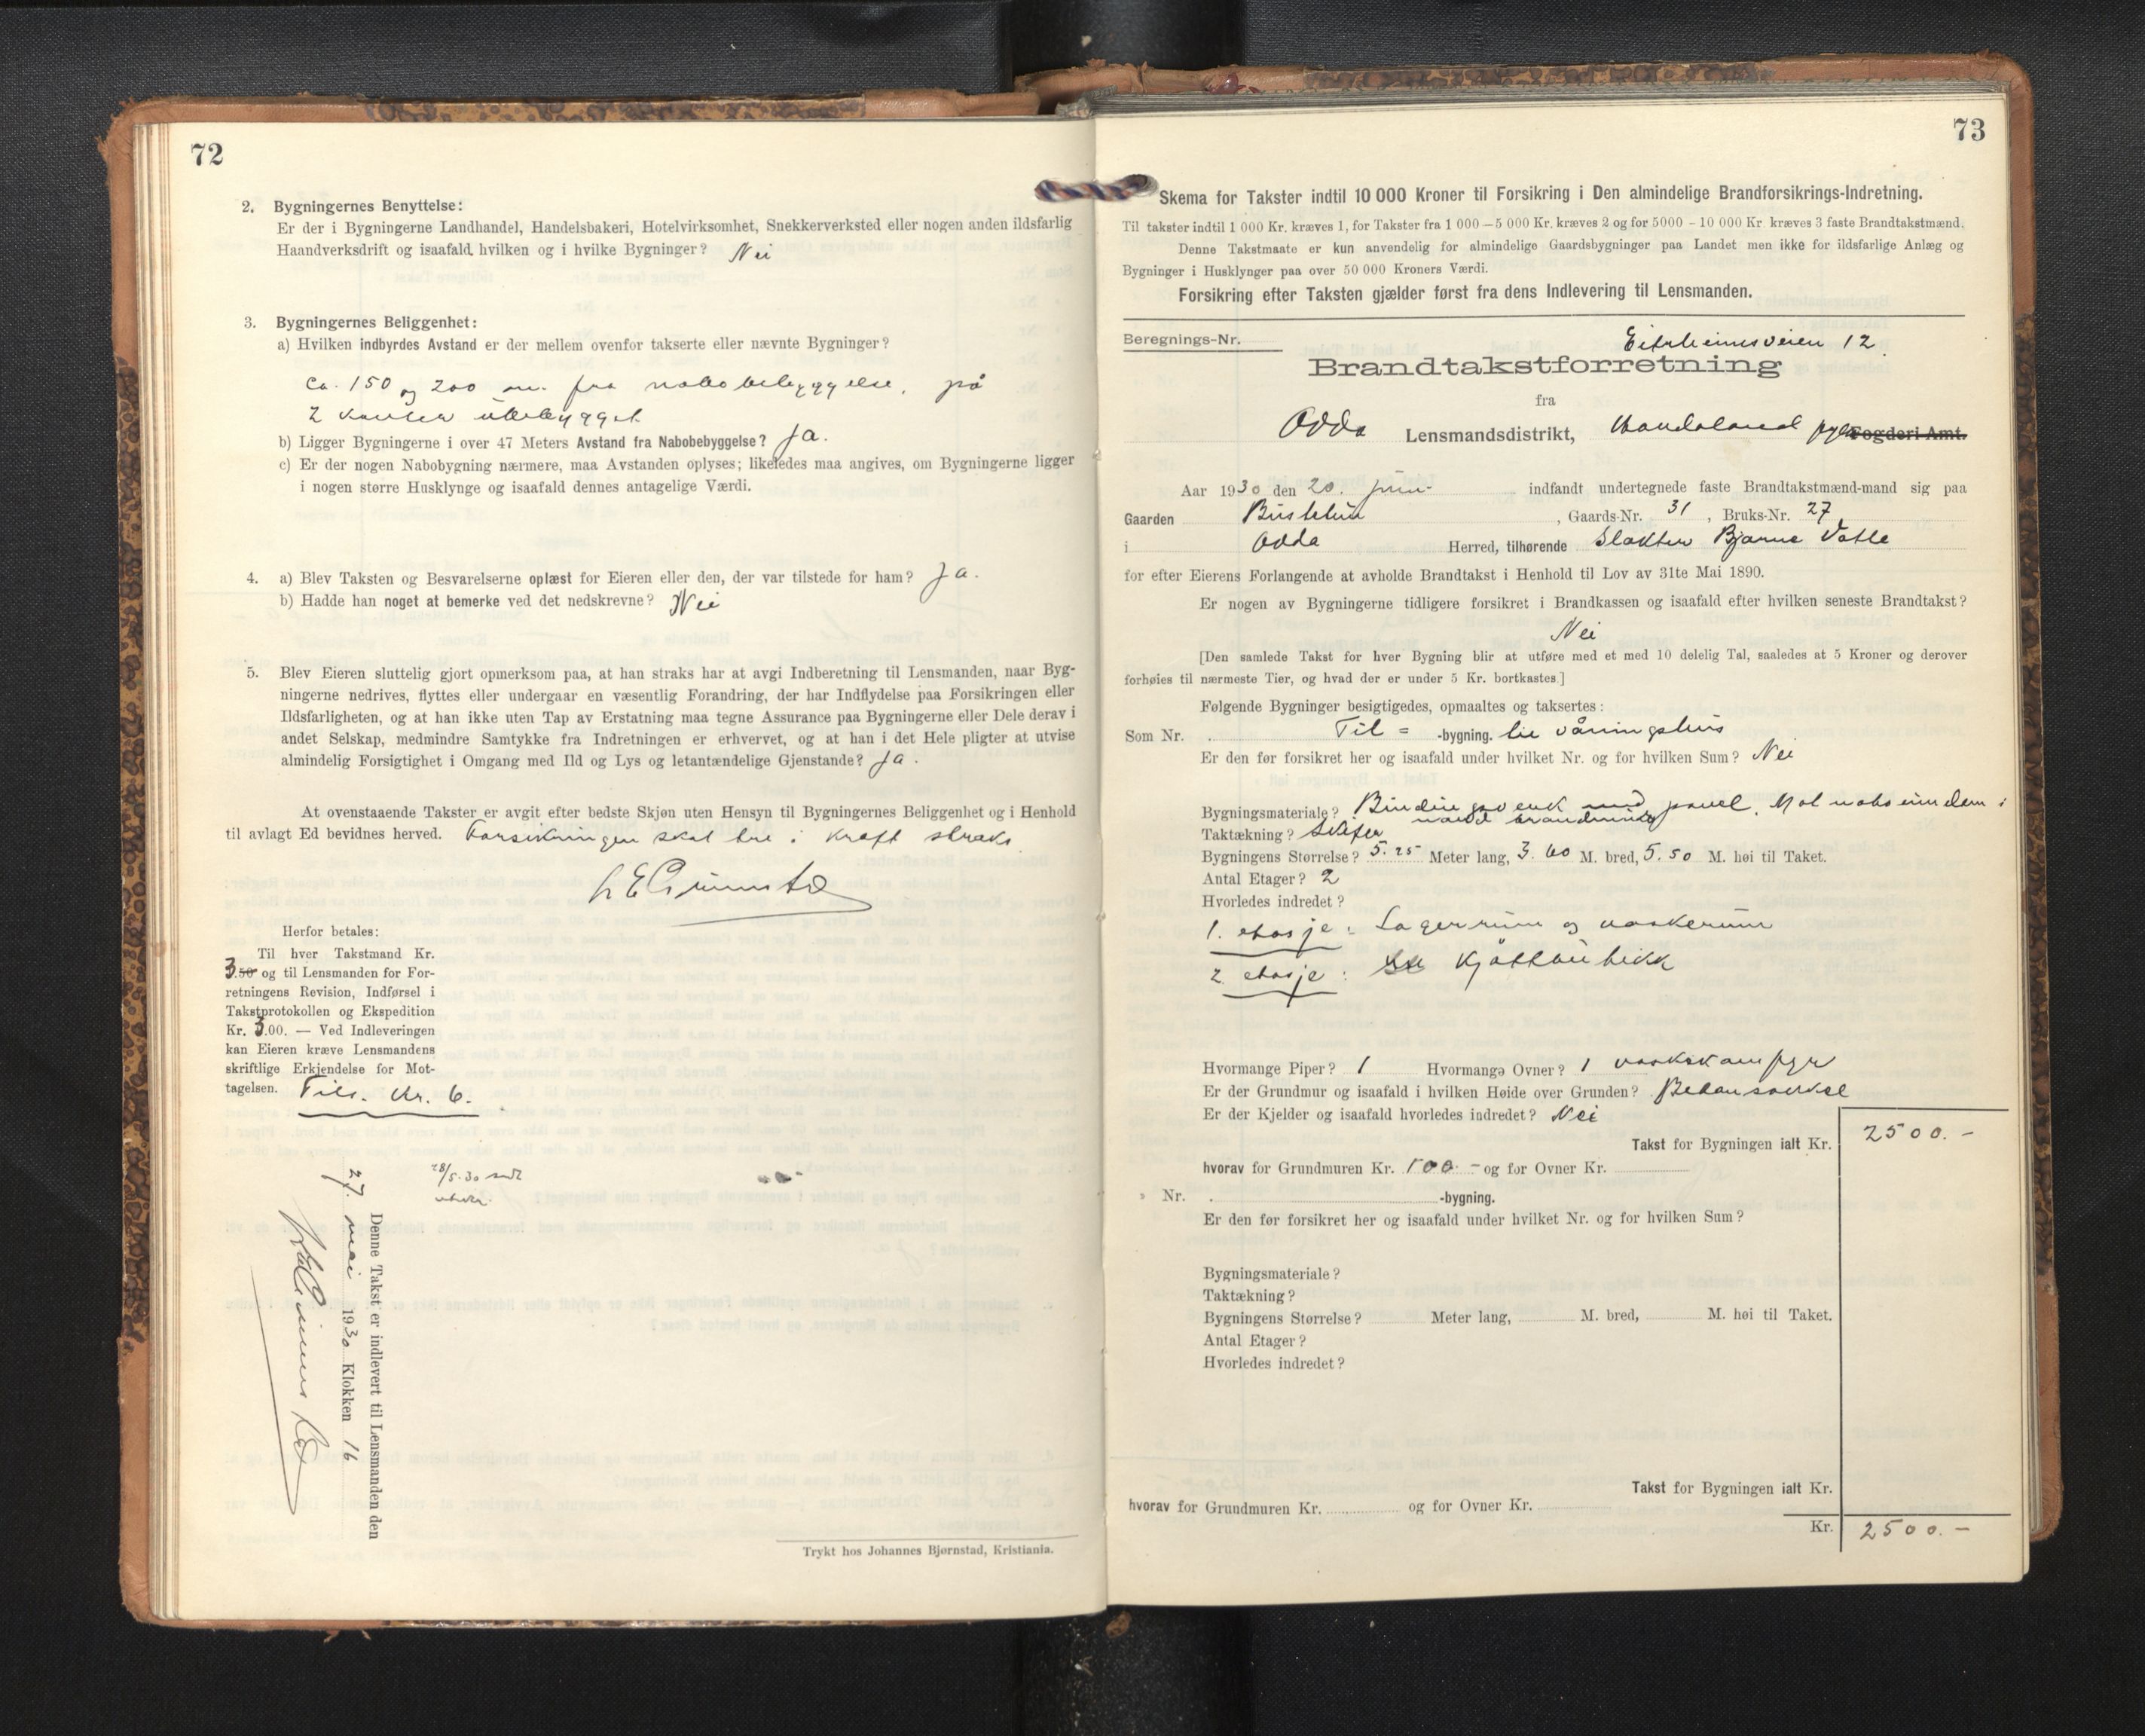 72
2. Bygningernes Benyttelse:
Er der i Bygningerne Landhandel, Handelsbakeri, Hotelvirksomhet, Snekkerverksted eller nogen anden ildsfarlig
Haandverksdrift og isaafald hvilken og i hvilke Bygninger? Nei
3. Bygningernes Beliggenhet:
a) Hvilken indbyrdes Avstand er der mellem ovenfor takserte eller nævnte Bygninger?
ca. 150 og 200 m. fra nabobebyggelse, på
2 kanter ubebygget
b) Ligger Bygningerne i over 47 Meters Avstand fra Nabobebyggelse? Ja.
c) Er der nogen Nabobygning nærmere, maa Avstanden oplyses; likeledes maa angives, om Bygningerne ligger
i nogen større Husklynge og isaafald dennes antagelige Værdi.
4. a) Blev Taksten og Besvarelserne oplæst for Eieren eller den, der var tilstede for ham? Ja.
b) Hadde han noget at bemerke ved det nedskrevne? Nei
5. Blev Eieren sluttelig gjort opmerksom paa, at han straks har at avgi Indberetning til Lensmanden, naar Byg-
ningerne nedrives, flyttes eller undergaar en væsentlig Forandring, der har Indflydelse paa Forsikringen eller
Ildsfarligheten, og at han ikke uten Tap av Erstatning maa tegne Assurance paa Bygningerne eller Dele derav i
andet Selskap, medmindre Samtykke fra Indretningen er erhvervet, og at han i det Hele pligter at utvise
almindelig Forsigtighet i Omgang med Ild og Lys og letantændelige Gjenstande? Ja.
At ovenstaaende Takster er avgit efter bedste Skjøn uten Hensyn til Bygningernes Beliggenhet og i Henhold
til avlagt Ed bevidnes herved. Forsikringen skal tre i kraft straks.
Herfor betales:
Til hver Takstmand Kr.
3.50 og til Lensmanden for For-
retningens Revision, Indførsel i
Takstprotokollen og Ekspedition
Kr. 3.00. — Ved Indleveringen
kan Eieren kræve Lensmandens
skriftlige Erkjendelse for Mot-
tagelsen. Tils. kr. 6.
28/5-30 sendt
Denne Takst er indlevert til Lensmanden den
27. mai 1930 Klokken 16
Trykt hos Johannes Bjørnstad, Kristiania.
73
Skema for Takster indtil 10 000 Kroner til Forsikring i Den almindelige Brandforsikrings-Indretning.
Til takster indtil 1 000 Kr. kræves 1, for Takster fra 1 000 – 5 000 Kr. kræves 2 og for 5000 – 10 000 Kr. kræves 3 faste Brandtakstmænd.
Denne Takstmaate er kun anvendelig for almindelige Gaardsbygninger paa Landet men ikke for ildsfarlige Anlæg og
Bygninger i Husklynger paa over 50 000 Kroners Værdi.
Forsikring efter Taksten gjælder først fra dens Indlevering til Lensmanden.
Beregnings-Nr. Eitrheimsveien 12.
Brandtakstforretning
fra
Odda Lensmandsdistrikt, Hordaland fylke Fogderi Amt.
Aar 1930 den 20. juni indfandt undertegnede faste Brandtakstmænd-mand sig paa
Gaarden Bustetun, Gaards-Nr. 31, Bruks-Nr. 27
i Odda Herred, tilhørende Slakter Bjarne
for efter Eierens Forlangende at avholde Brandtakst i Henhold til Lov av 31te Mai 1890.
Er nogen av Bygningerne tidligere forsikret i Brandkassen og isaafald efter hvilken seneste Brandtakst?
Nei
[Den samlede Takst for hver Bygning blir at utføre med et med 10 delelig Tal, saaledes at 5 Kroner og derover
forhøies til nærmeste Tier, og hvad der er under 5 Kr. bortkastes.]
Følgende Bygninger besigtigedes, opmaaltes og taksertes:
Som Nr. Til = -bygning. til våningshus
Er den før forsikret her og isaafald under hvilket Nr. og for hvilken Sum? Nei
Bygningsmateriale? Bindingsverk med panel. Mot naboeiendom i
nord brandmur
Taktækning? Skifer
Bygningens Størrelse? 5.25 Meter lang, 3.60 M. bred, 5.50 M. høi til Taket.
Antal Etager? 2
Hvorledes indredet?
1. etasje: Lagerrum og vaskerum
2. etasje: Kjøttbutikk
Hvormange Piper? 1 Hvormange Ovner? 1 vaskekamfyr
Er der Grundmur og isaafald i hvilken Høide over Grunden? Betonsaale
Er der Kjelder og isaafald hvorledes indredet? Nei
Takst for Bygningen ialt Kr. 2500.-
hvorav for Grundmuren Kr. 100.- og for Ovner Kr.
» Nr. . -bygning.
Er den før forsikret her og isaafald under hvilket Nr. og for hvilken Sum?
Bygningsmateriale?
Taktækning?
Bygningens Størrelse? Meter lang, M. bred, M. høi til Taket.
Antal Etager?
Hvorledes indredet?
Takst for Bygningen ialt Kr.
hvorav for Grundmuren Kr. og for Ovner Kr.
Kr. 2500.-